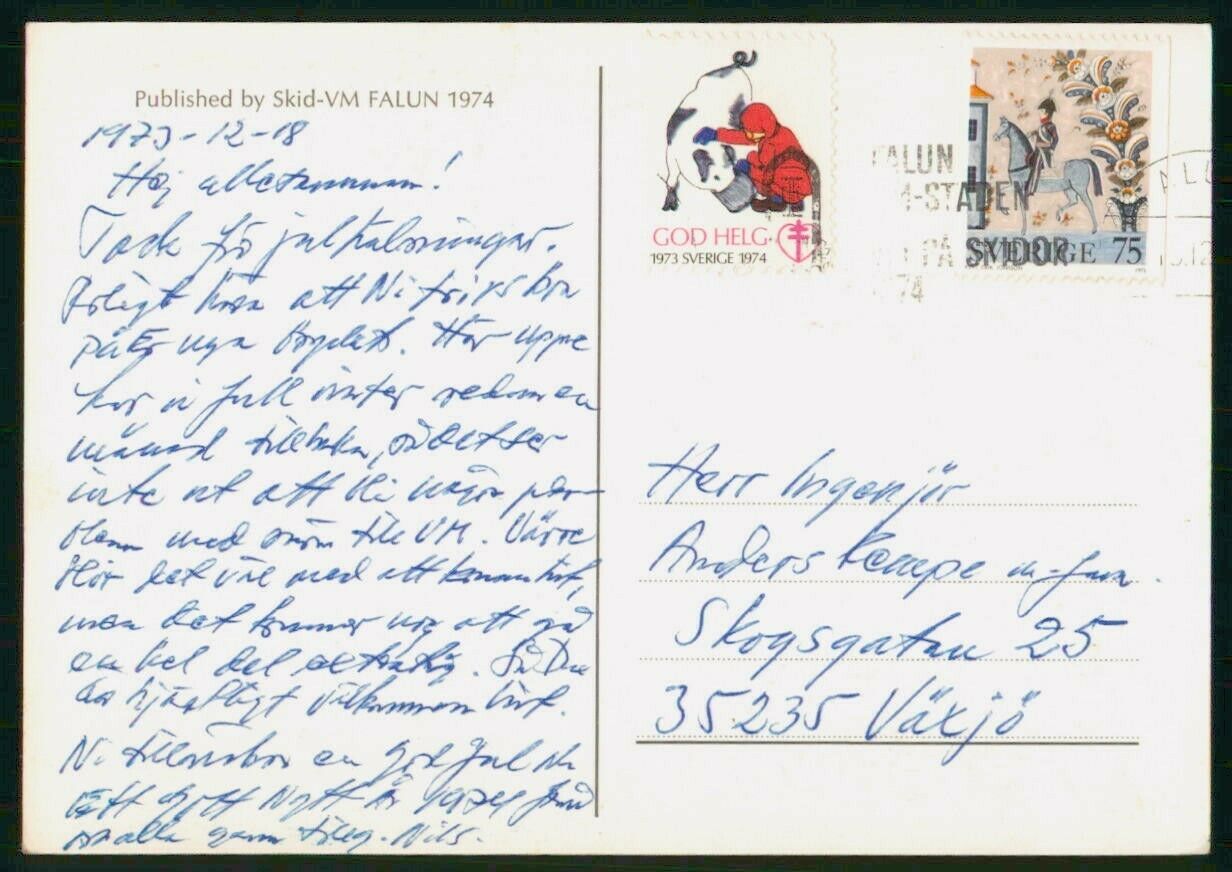 Published by Skid-VM FALUN 1974
1973-12-18
Hej allesamman!
Tack för julhälsningar.
att Ni
på Er nya. Här uppe
har vi full vinter redan en
månad tillbaka, så det ser
inte ut att bli några pro-
blem med snön till VM. Värre
blir det väl med att komma hit,
men det kommer nog att gå
en hel del extratåg. Så Du
är hjärtligt välkommen hit.
Ni tillönskas en God Jul o
Ett Gott Nytt År 1974
alla. Nils.
GOD HELG.
1973 SVERIGE 1974
FALUN
M-STADEN
PÅ SKIDOR
74
SVERIGE 75
Herr Ingenjör
Anders Kempe m. fam.
Skogsgatan 25
35235 Växjö